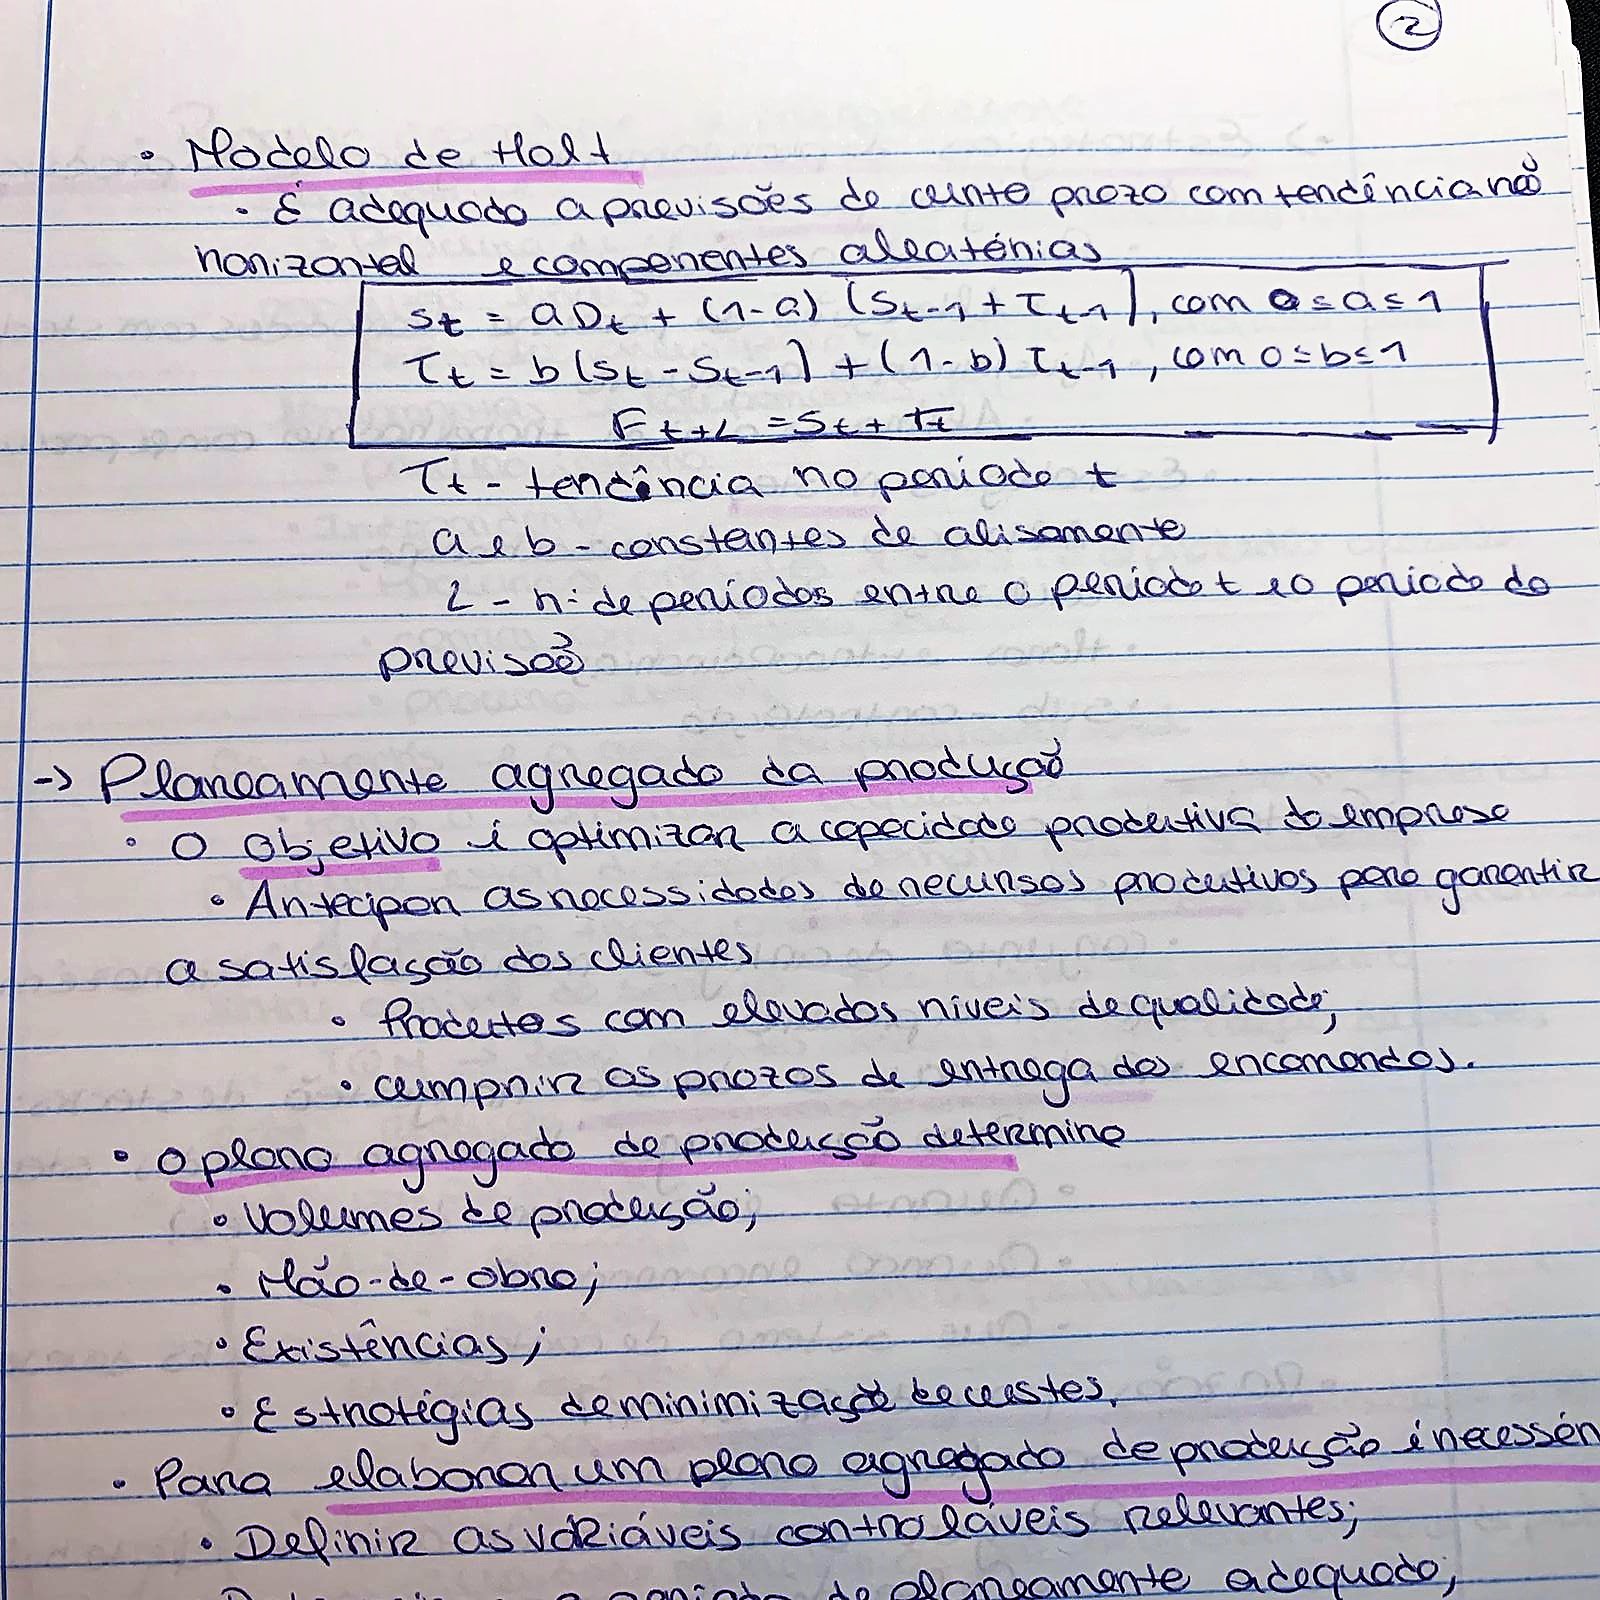 2
• Modelo de Holt
• É adequado a previsões de curto prazo com tendência não
horizontal e componentes aleatórias
St = aDt + (1-a) (St-1 + Tt-1), com 0 ≤ a ≤ 1
Tt = b(St - St-1) + (1-b) Tt-1, com 0 ≤ b ≤ 1
Ft+L = St + Tt
Tt - tendência no período t
a e b - constantes de alisamento
L - nº de períodos entre o período t e o período da
previsão
-> Planeamento agregado da produção
• O objetivo é optimizar a capacidade produtiva da empresa
• Antecipar as necessidades de recursos produtivos para garantir
a satisfação dos clientes
• Produtos com elevados níveis de qualidade;
• cumprir os prazos de entrega das encomendas.
• O plano agregado de produção determina
• Volumes de produção;
• Mão-de-obra;
• Existências;
• Estratégias de minimização de custos.
• Para elaborar um plano agregado de produção é necessár
• Definir as variáveis controláveis relevantes;
de planeamento adequado;